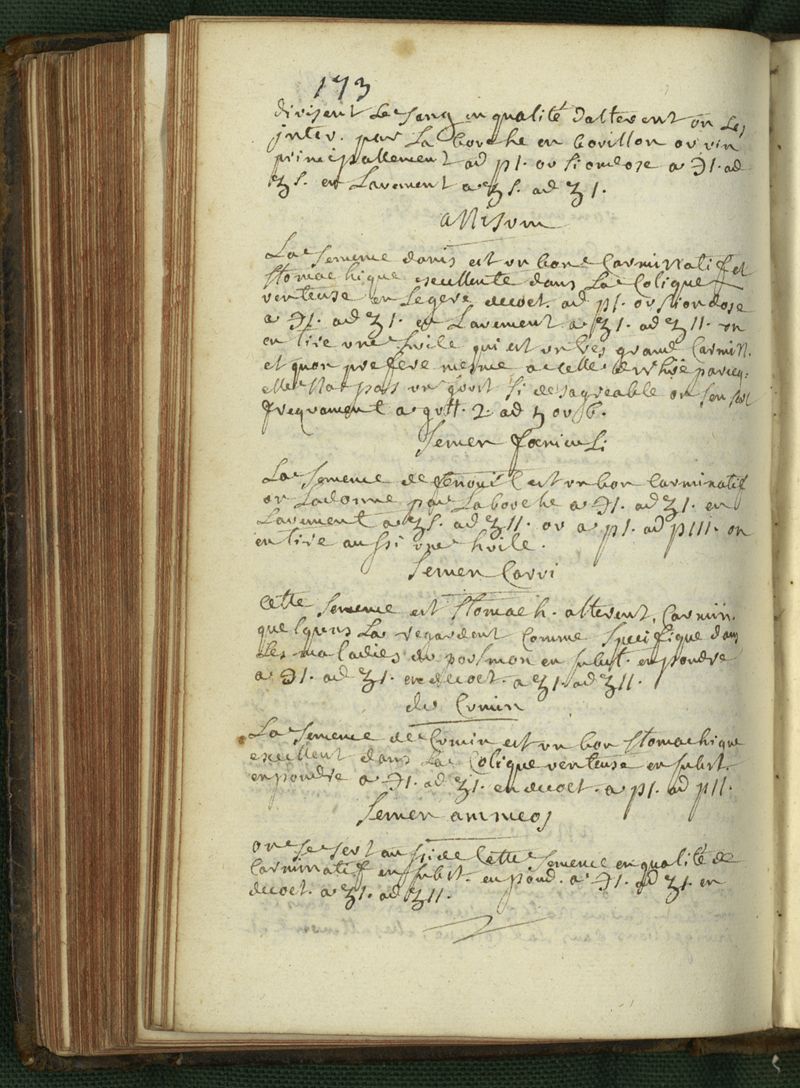 173
divisent le sang en qualité dalterent on les
inter. par la bouche en bouillon ou vin
principallement ad p1. ou si on dose a ℈1. ad
ʒs. en Lavement a ʒs. ad ʒ1.
anisum
La semence danis est un bon Carminatif et
stomachique excellente dans la Colique
venteuse en legere decoct. ad p1. ou si on dose
a ℈1. ad ʒ1. en Lavement a ʒ1. ad ʒ11. on
en tire une huile qui est un tres grand Carmin.
et quon prefere mesme a celle parceq
elle na pas un goust si desagreable on sen sert
frequament a gutt. 2. ad 5 ou 6.
Semen foeniculi
La Semence de fenouil est un bon Carminatif
on La donne par La bouche a ℈1. ad ʒ1. en
Lavement a ʒs. ad ʒ11. ou a p1. ad p111. on
en tire aussi une huile.
Semen Carvi
Cette Semence est stomach. alterent, Carmin.
quelquns La regardent Comme specifique dans
Les maladies du poulmon en subst. en poudre
a ℈1. ad ʒ1. en decoct. a ʒ1. ad ʒ11.
du Cumin
La semence de Cumin est un bon stomachique
excellent dans La Colique venteuse en subst.
en poudre a ℈1. ad ʒ1. en decoct. a p1. ad p11.
Semen ammeos
on se sert aussi de Cette Semence en qualité de
Carminatif en subst. en poud. a ℈1. ad ʒ1. en
decoct. a ʒ1. ad ʒ11.